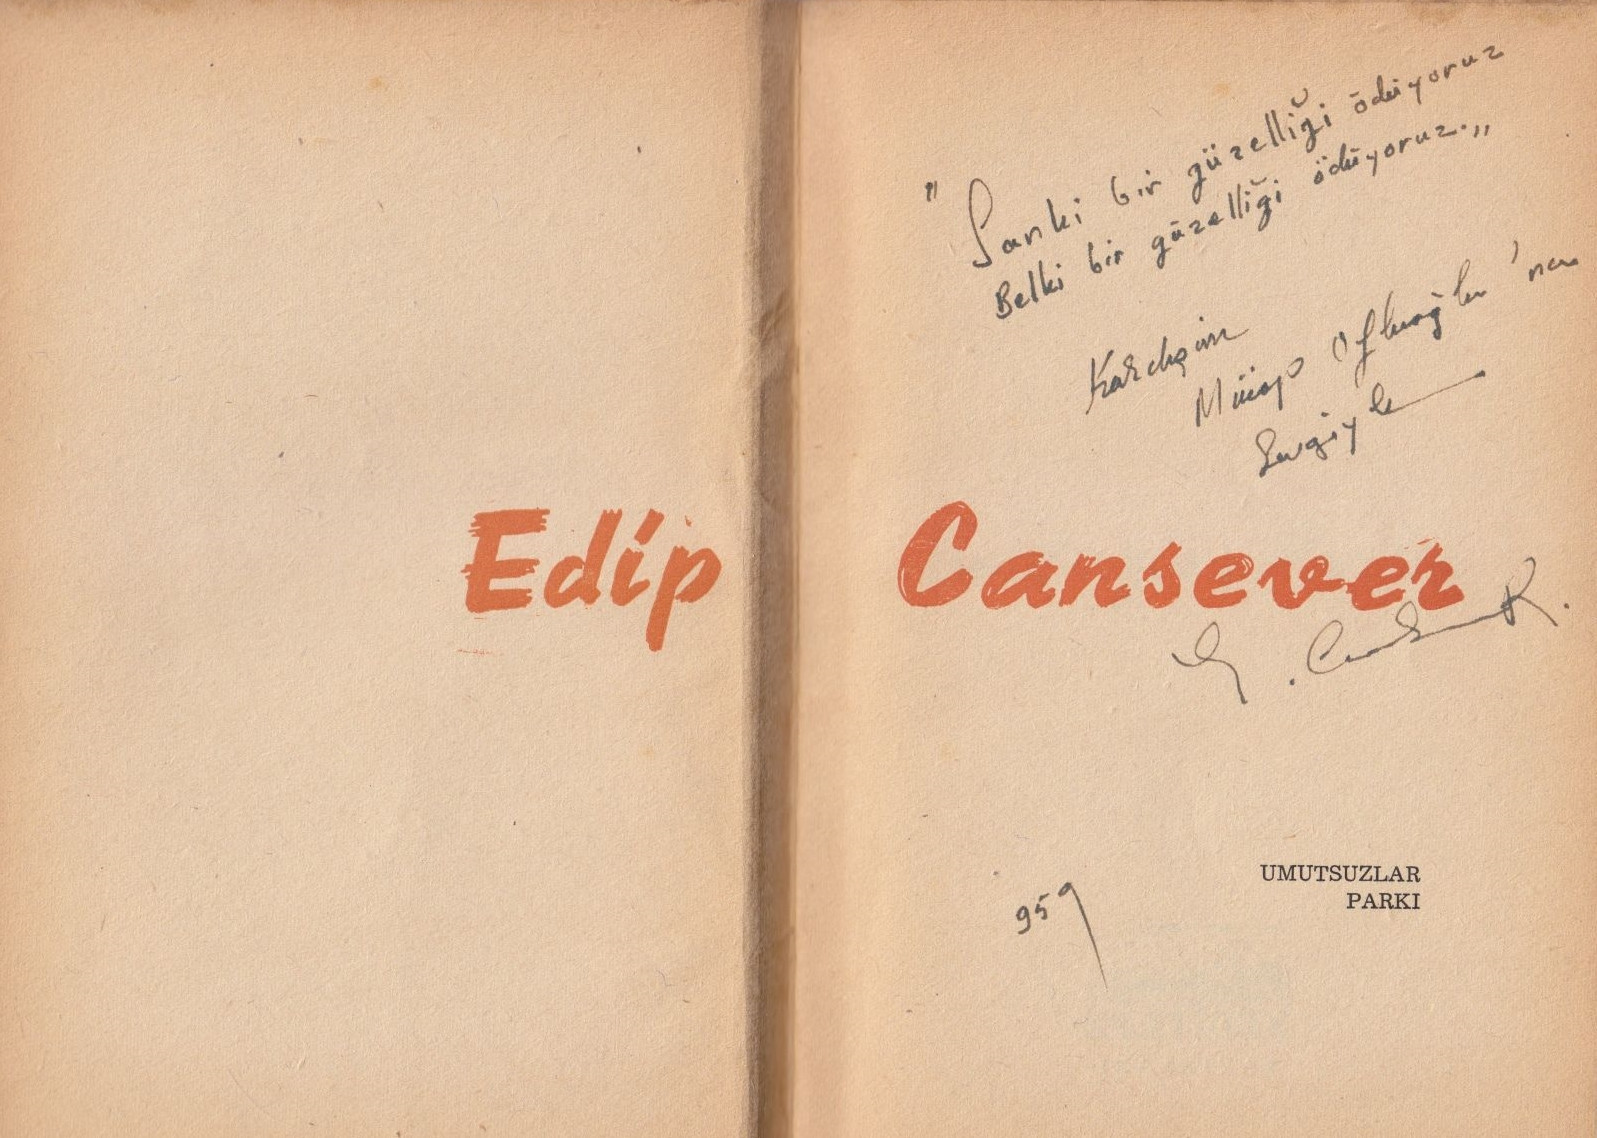 "Sanki bir güzelliği ödüyoruz
Belki bir güzelliği ödüyoruz."
Kardeşim
Mücap Ofluoğlu'na
Sevgiyle
Edip Cansever
E. Cansever.
UMUTSUZLAR
PARKI
959